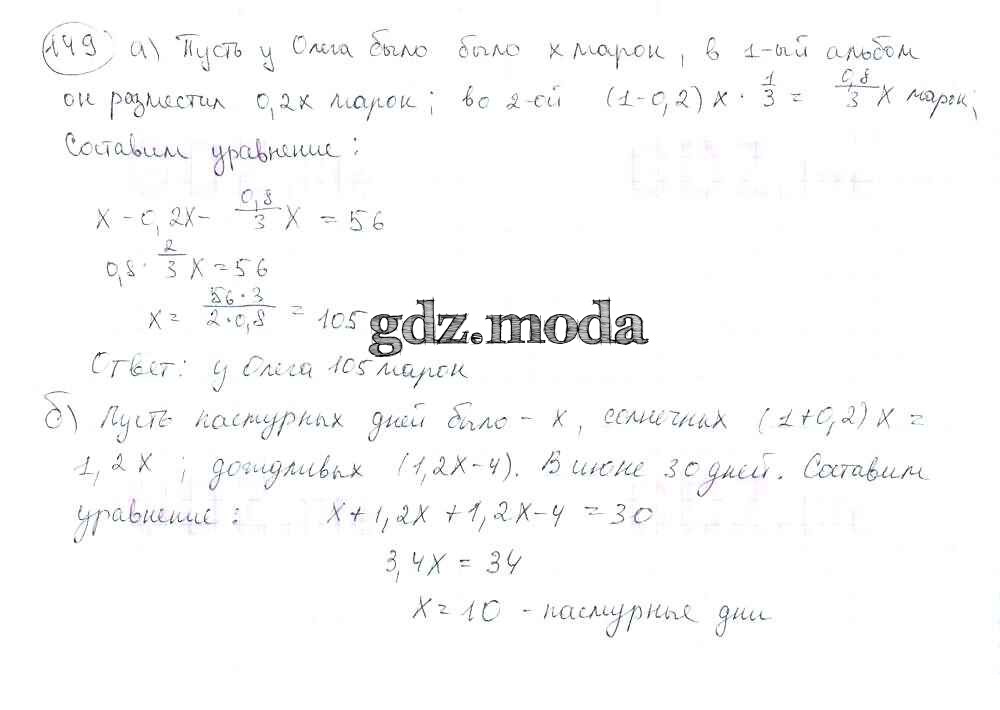 149 а) Пусть у Олега было было x марок, в 1-ый альбом
он разместил 0,2x марок; во 2-ой (1-0,2)x · 1/3 = 0,8/3 x марок;
Составим уравнение:
x - 0,2x - 0,8/3 x = 56
0,8 · 2/3 x = 56
x = 56·3/2·0,8 = 105
gdz.moda
Ответ: у Олега 105 марок
б) Пусть пасмурных дней было - x, солнечных (1+0,2)x =
1,2x ; дождливых (1,2x-4). В июне 30 дней. Составим
уравнение: x+1,2x+1,2x-4 = 30
3,4x = 34
x = 10 - пасмурные дни